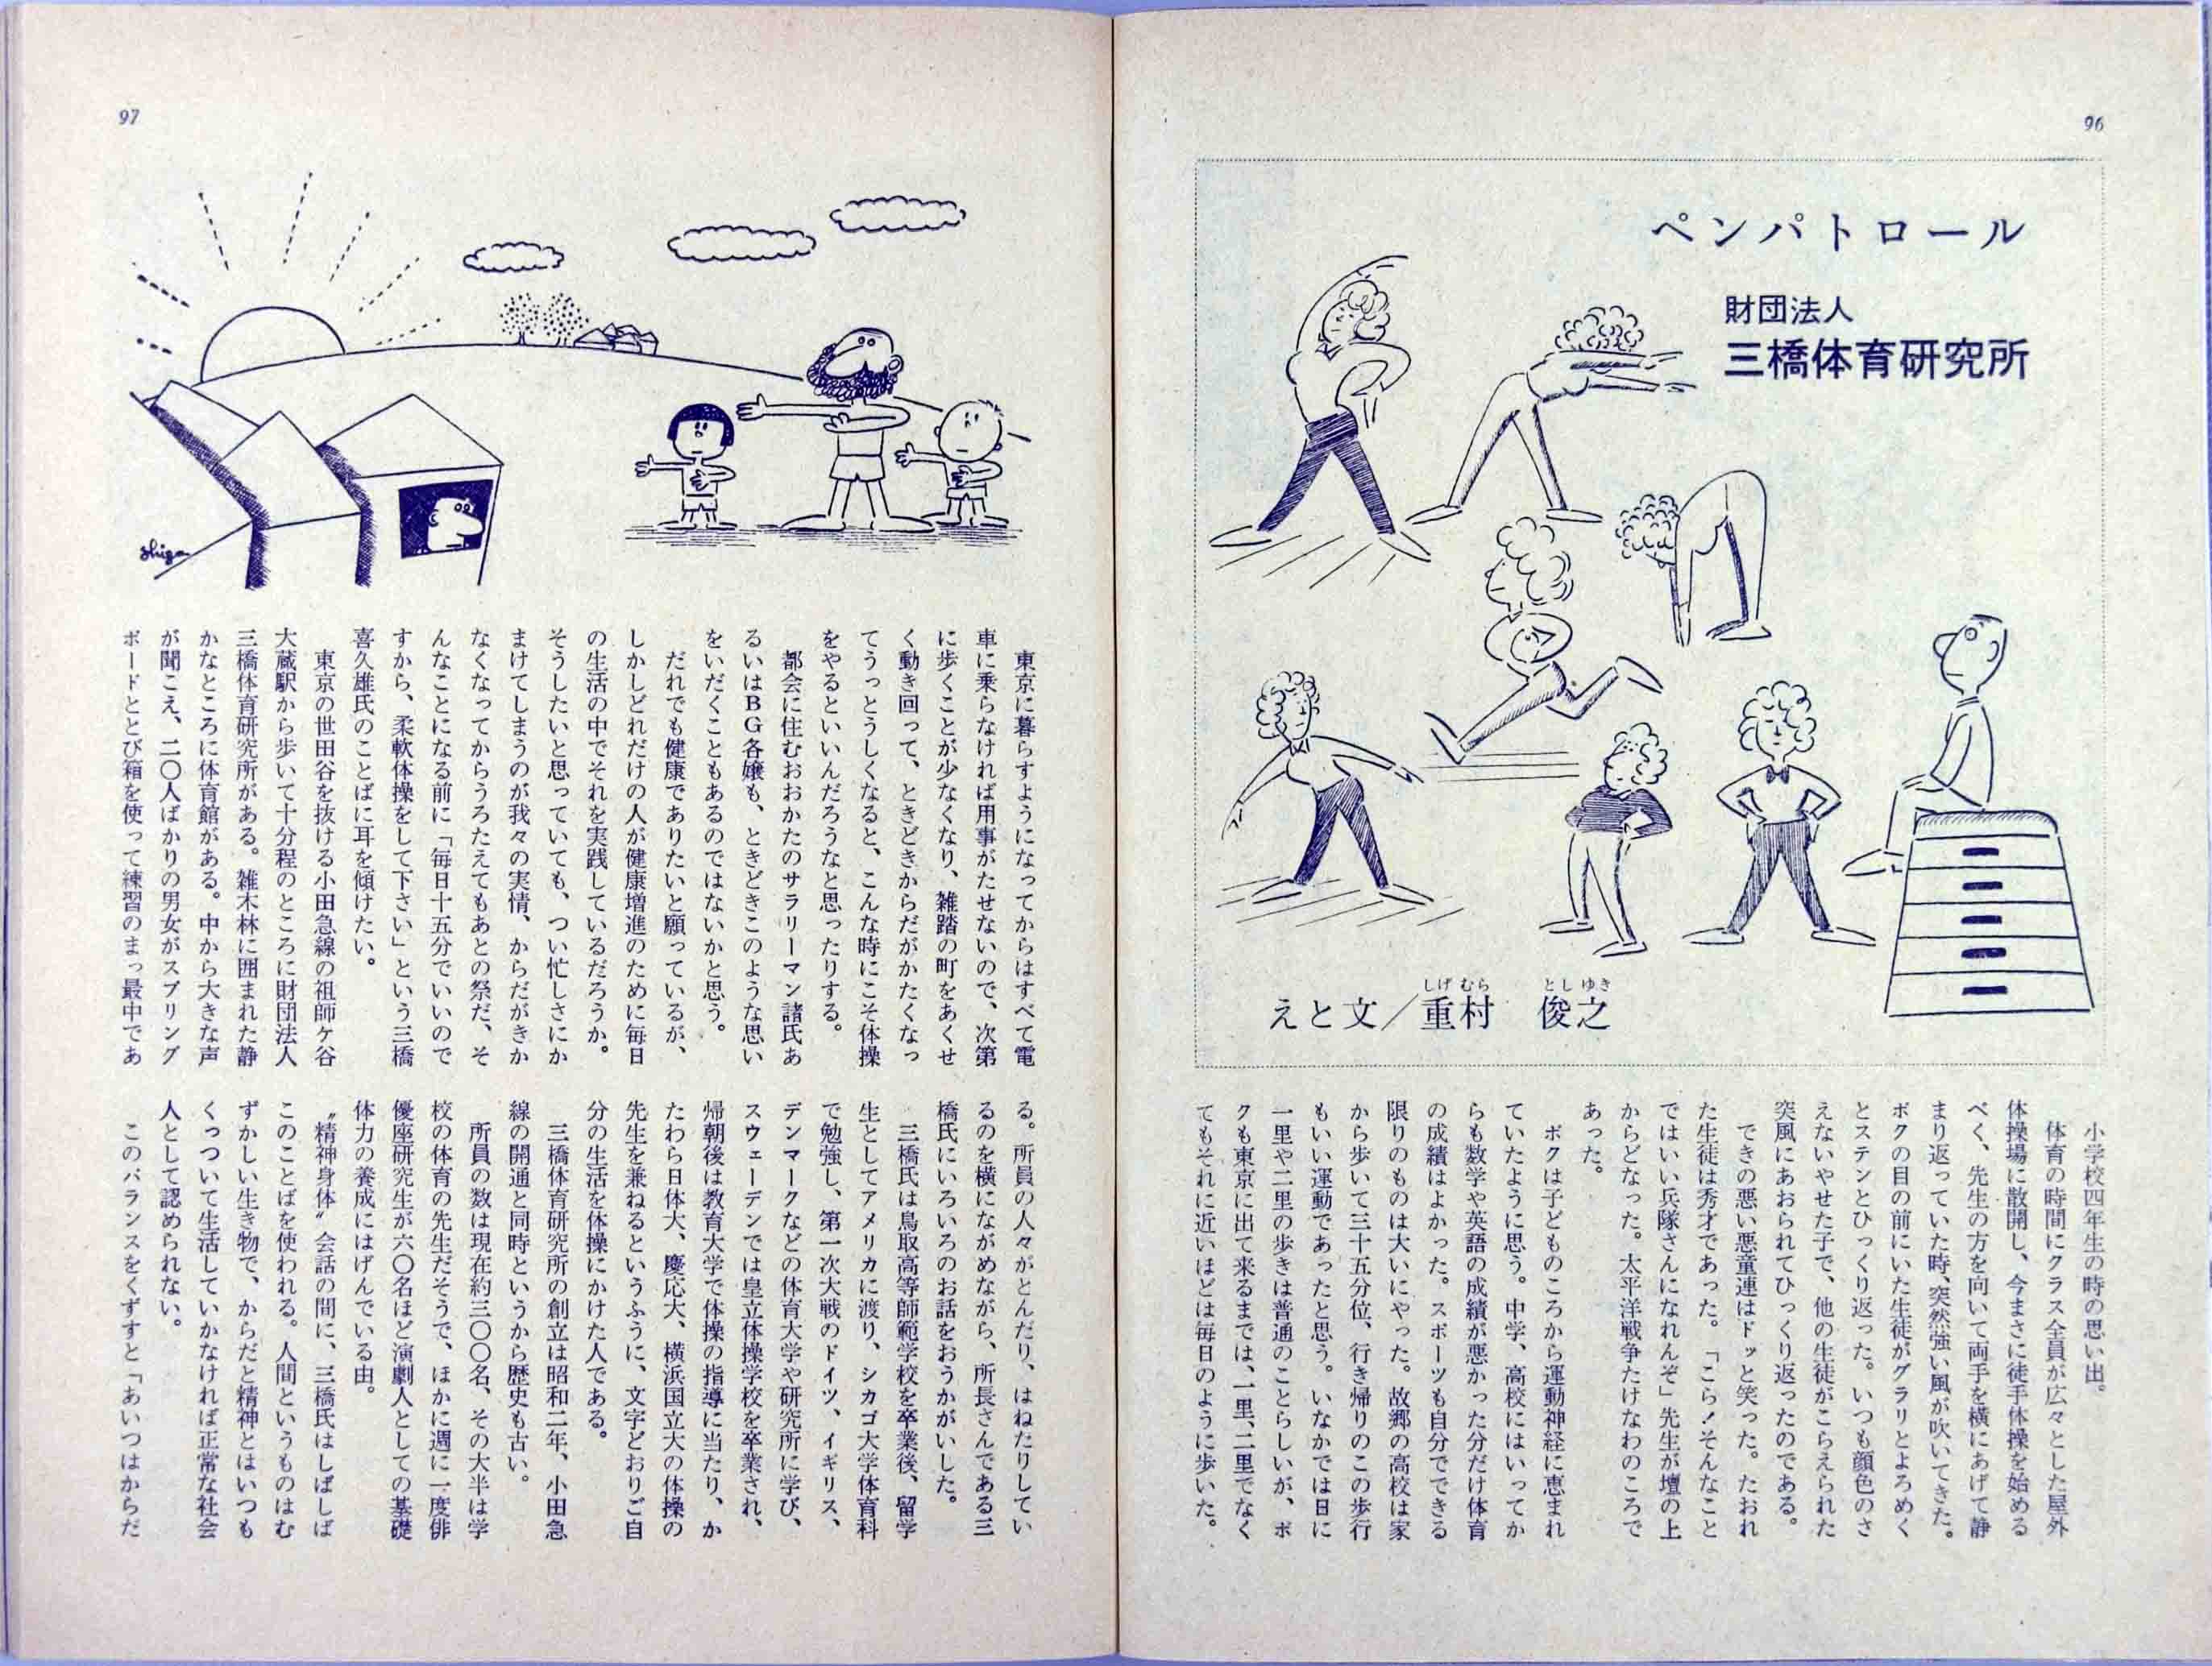 96
ペンパトロール
財団法人
三橋体育研究所
えと文／重村　俊之
しげ むら　とし ゆき
小学校四年生の時の思い出。
体育の時間にクラス全員が広々とした屋外
体操場に散開し、今まさに徒手体操を始める
べく、先生の方を向いて両手を横にあげて静
まり返っていた時、突然強い風が吹いてきた。
ボクの目の前にいた生徒がグラリとよろめく
とステンとひっくり返った。いつも顔色のさ
えないやせた子で、他の生徒がこらえられた
突風にあおられてひっくり返ったのである。
できの悪い悪童連はドッと笑った。たおれ
た生徒は秀才であった。「こら！そんなこと
ではいい兵隊さんになれんぞ」先生が壇の上
からどなった。太平洋戦争たけなわのころで
あった。
ボクは子どものころから運動神経に恵まれ
ていたように思う。中学、高校にはいってか
らも数学や英語の成績が悪かった分だけ体育
の成績はよかった。スポーツも自分でできる
限りのものは大いにやった。故郷の高校は家
から歩いて三十五分位、行き帰りのこの歩行
もいい運動であったと思う。いなかでは日に
一里や二里の歩きは普通のことらしいが、ボ
クも東京に出て来るまでは、一里、二里でなく
てもそれに近いほどは毎日のように歩いた。
97
shige
東京に暮らすようになってからはすべて電
車に乗らなければ用事がたせないので、次第
に歩くことが少なくなり、雑踏の町をあくせ
く動き回って、ときどきからだがかたくなっ
てうっとうしくなると、こんな時にこそ体操
をやるといいんだろうなと思ったりする。
都会に住むおおかたのサラリーマン諸氏あ
るいはＢＧ各嬢も、ときどきこのような思い
をいだくこともあるのではないかと思う。
だれでも健康でありたいと願っているが、
しかしどれだけの人が健康増進のために毎日
の生活の中でそれを実践しているだろうか。
そうしたいと思っていても、つい忙しさにか
まけてしまうのが我々の実情、からだがきか
なくなってからうろたえてもあとの祭だ、そ
んなことになる前に「毎日十五分でいいので
すから、柔軟体操をして下さい」という三橋
喜久雄氏のことばに耳を傾けたい。
東京の世田谷を抜ける小田急線の祖師ケ谷
大蔵駅から歩いて十分程のところに財団法人
三橋体育研究所がある。雑木林に囲まれた静
かなところに体育館がある。中から大きな声
が聞こえ、二〇人ばかりの男女がスプリング
ボードととび箱を使って練習のまっ最中であ
る。所員の人々がとんだり、はねたりしてい
るのを横にながめながら、所長さんである三
橋氏にいろいろのお話をおうかがいした。
三橋氏は鳥取高等師範学校を卒業後、留学
生としてアメリカに渡り、シカゴ大学体育科
で勉強し、第一次大戦のドイツ、イギリス、
デンマークなどの体育大学や研究所に学び、
スウェーデンでは皇立体操学校を卒業され、
帰朝後は教育大学で体操の指導に当たり、か
たわら日体大、慶応大、横浜国立大の体操の
先生を兼ねるというふうに、文字どおりご自
分の生活を体操にかけた人である。
三橋体育研究所の創立は昭和二年、小田急
線の開通と同時というから歴史も古い。
所員の数は現在約三〇〇名、その大半は学
校の体育の先生だそうで、ほかに週に一度俳
優座研究生が六〇名ほど演劇人としての基礎
体力の養成にはげんでいる由。
〝精神身体〟会話の間に、三橋氏はしばしば
このことばを使われる。人間というものはむ
ずかしい生き物で、からだと精神とはいつも
くっついて生活していかなければ正常な社会
人として認められない。
このバランスをくずすと「あいつはからだ